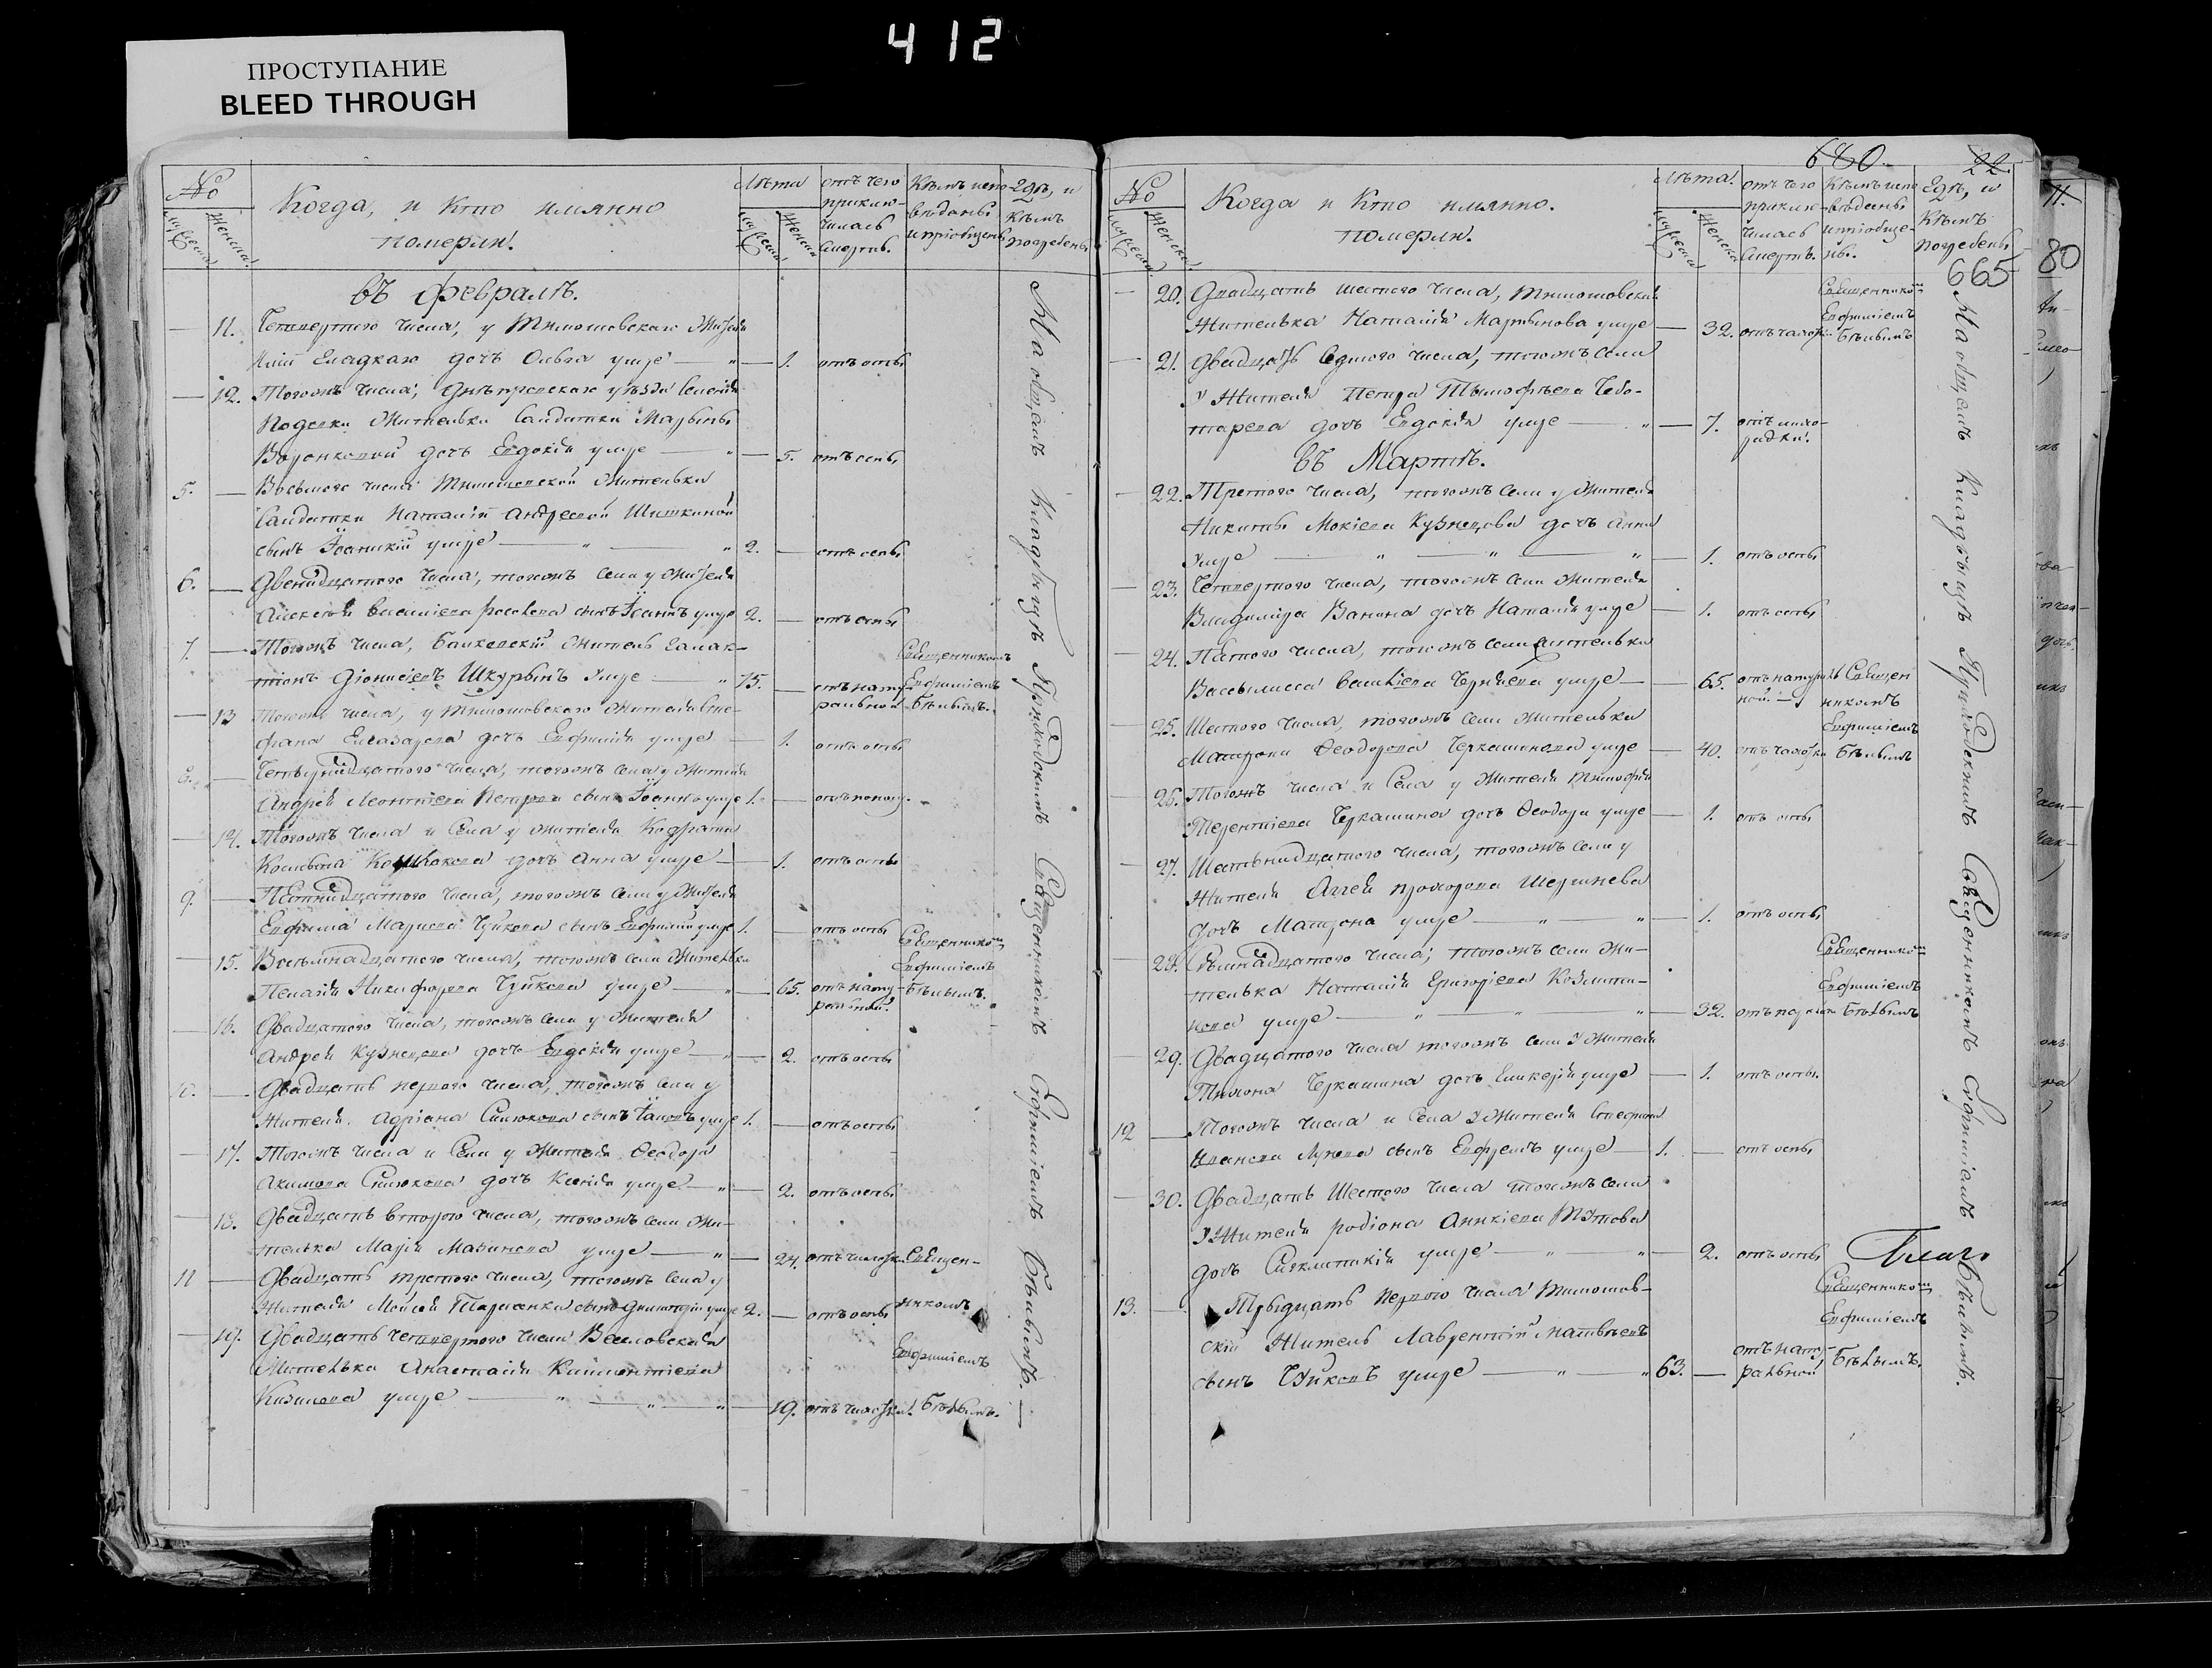 412
ПРОСТУПАНИЕ
BLEED THROUGH
№
Мужеска
Женска
Когда, и Кто имянно
померли.
Лѣта
Мужеска
Женска
отъ чего
приклю-
чилась
смерть.
Кѣмъ испо-
вѣданы
и пріобщены
Гдѣ, и
кѣмъ
погребены
въ Февралѣ.
11. Четвертого числа, у Тимошовскаго Жителя
дочь Ольга умре — 1. отъ оспы
12. Тогожъ числа, Днѣпровскаго уѣзда
Жителки Салдатки Марыны
Воронковой дочь Евдокія умре — 5. отъ оспы
5. Восьмого числа Тимошовской Жителки
Салдатки Наталіи Андреевой Шишкиной
сынъ Іоаникій умре — 2. — отъ оспы
6. — Двенадцатого числа, тогожъ села у Жителя
Алексея Василіева сынъ Іоаннъ умре 2. — отъ оспы
7. — Тогожъ числа, Балковскій Житель Галак-
тіонъ Діонисіевъ Шкурынъ умре — 75. — отъ нату-
ральной
Священникомъ
Евфиміемъ
Бѣлымъ.
13 Тогожъ числа, у Тимошовскаго Жителя Сте-
фана Елеазарева дочь Евфимія умре — 1. отъ оспы
8. — Четырнадцатого числа, тогожъ села у Жителя
Андрея Леонтіева Петрова сынъ Іоаннъ умре 1. —
14. Тогожъ числа и Села у Жителя Кодрата
Космина дочь Анна умре — 1. отъ оспы
9. — Пятнадцатого числа, тогожъ села у Жителя
Евфима Чуйкова сынъ Евфимій умре 1. — отъ оспы
15. Восемнадцатого числа, тогожъ села Жителка
Пелагія Никифорова Чуйкова умре — 65. отъ нату-
ральной
Священникомъ
Евфиміемъ
Бѣлымъ.
16. Двадцатого числа, тогожъ села у Жителя
Андрея Кузнецова дочь Евдокія умре — 2. отъ оспы
10. — Двадцать первого числа, тогожъ села у
Жителя Адріана Сынъ Іаковъ умре 1. — отъ оспы
17. Тогожъ числа и Села у Жителя Феодора
Акимова дочь Ксенія умре — 2. отъ оспы
18. Двадцать второго числа, тогожъ села Жи-
телка Марія умре — 24. отъ чахотки Священ-
11 — Двадцать третого числа, тогожъ села у
Жителя Моисея Тарасенка сынъ Димитрій умре 2. — отъ оспы
никомъ
19. Двадцать четвертого числа Веселовская
Жителка Анастасія Климентіева
Казимова умре — 19. отъ чахотки.
Евфиміемъ
Бѣлымъ.
На общемъ Кладбищѣ Приходскимъ Священникомъ Евфиміемъ Бѣлымъ.
680.
22.
№
Мужеска
Женска
Когда и Кто имянно.
померли.
Лѣта.
Мужеска
Женска
отъ чего
приклю-
чилась
смерть.
Кѣмъ испо-
вѣданы
и пріобще-
ны.
Гдѣ, и
Кѣмъ
погребены
665
80
20. Двадцать шестого числа, Тимошовская
Жителька Наталія Мартынова умре — 32. отъ чахотки
Священникомъ
Евфиміемъ
Бѣлымъ
21. Двадцать седмого числа, тогожъ села
у Жителя Петра Тимофѣева Чебо-
тарева дочь Евдокія умре — 7. отъ лихо-
радки.
въ Мартѣ.
22. Третого числа, тогожъ села у Жителя
Никиты Мокіева Кузнецова дочь Анна
умре — 1. отъ оспы
23. Четвертого числа, тогожъ села Жителя
Владиміра Ванина дочь Наталія умре — 1. отъ оспы
24. Пятого числа, тогожъ села Жителька
Васылисса умре — 65. отъ натураль-
ной. —
Священ
никомъ
Евфиміемъ
Бѣлымъ
25. Шестого числа, тогожъ села Жителька
Матрона Феодорова Черкашинова умре — 40. отъ чахотки
26. Тогожъ числа и Села у Жителя Тимофея
Терентіева Черкашина дочь Феодора умре — 1. отъ оспы
27. Шестьнадцатого числа, тогожъ села у
Жителя Аггея Прохорова Шершнева
дочь Матрона умре — 1. отъ оспы
28. Семнадцатого числа; тогожъ села Жи-
телька Наталія Григоріева
умре — 32.
Священникомъ
Евфиміемъ
Бѣлымъ
29. Двадцатого числа тогожъ села у Жителя
Тихона Черкашина дочь Гликерія умре — 1. отъ оспы.
12 — Тогожъ числа и Села у Жителя Стефана
Иванова сынъ Ефремъ умре — 1. — отъ оспы
30. Двадцать Шестого числа тогожъ села
у Жителя Родіона Аникіева Тѣтова
дочь Сигклитикія умре — 2. отъ оспы
13. — Трыдцать первого числа Тимошов-
скій Житель Лаврентій Матвѣевъ
сынъ Чуйковъ умре — 63. — отъ нату-
ральной
Священникомъ
Евфиміемъ
Бѣлымъ.
На общемъ Кладбищѣ Приходскимъ Священникомъ Евфиміемъ Бѣлымъ.
Благо